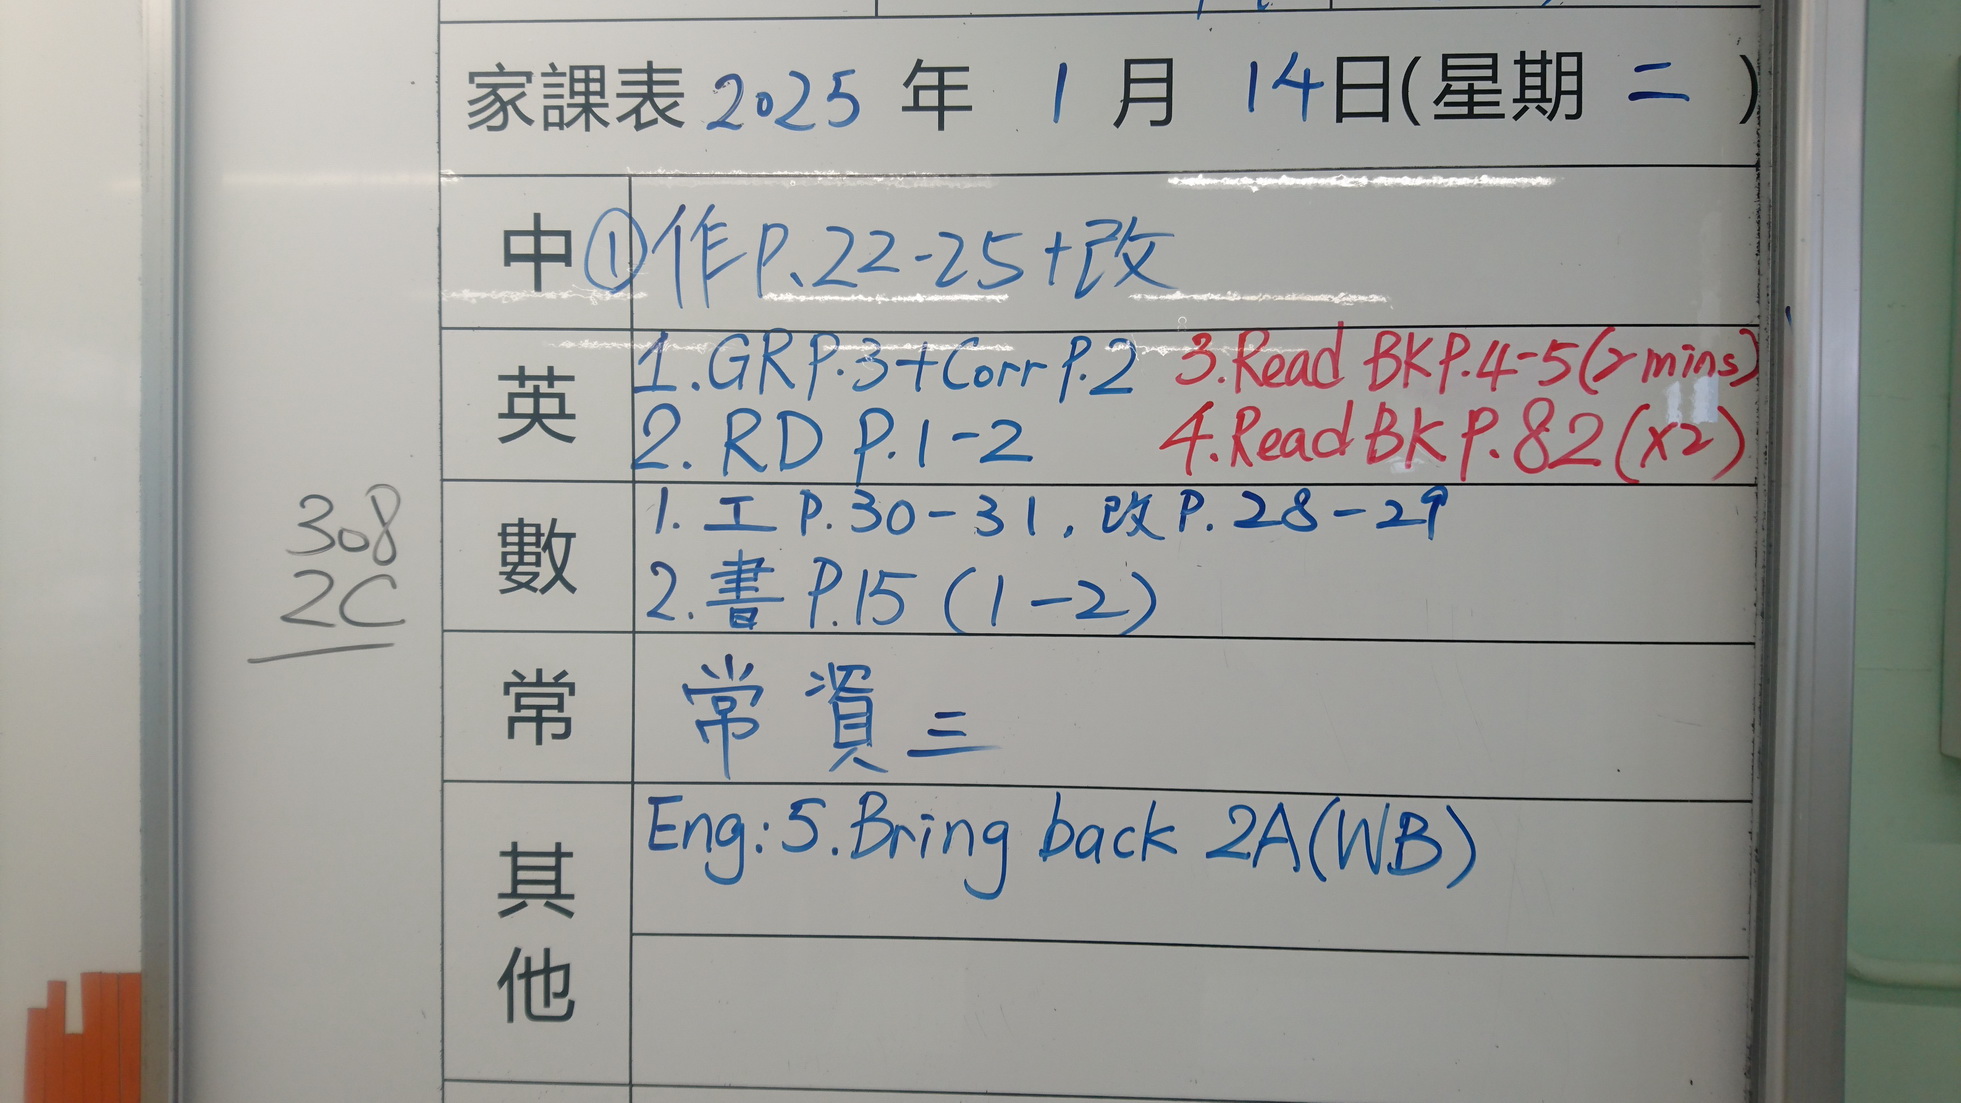 家課表 2025 年 1 月 14日(星期 二 )
中 ①作P.22-25+改
英 1.GR P.3+Corr P.2 3.Read BK P.4-5(2 mins)
2. RD P.1-2 4.Read BK P.82(x2)
數 1. 工 P.30-31, 改 P. 28-29
2. 書 P.15 (1-2)
308
2C
常 常資三
其他 Eng: 5. Bring back 2A(WB)